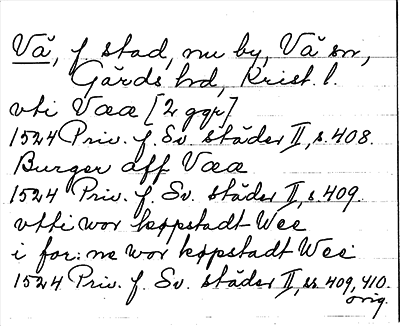 Vä, f stad, nu by, Vä sn,
Gärds hd, Krist. l.
vti Vææ [2 ggr]
1524 Priv. f. Sv. städer II, s. 408.
Burger aff Vææ
1524 Priv. f. Sv. städer II, s 409.
vtti wor køpstadt Wee
i for: ne wor køpstadt Wee
1524 Priv. f. Sv. städer II, ss 409, 410.
orig.